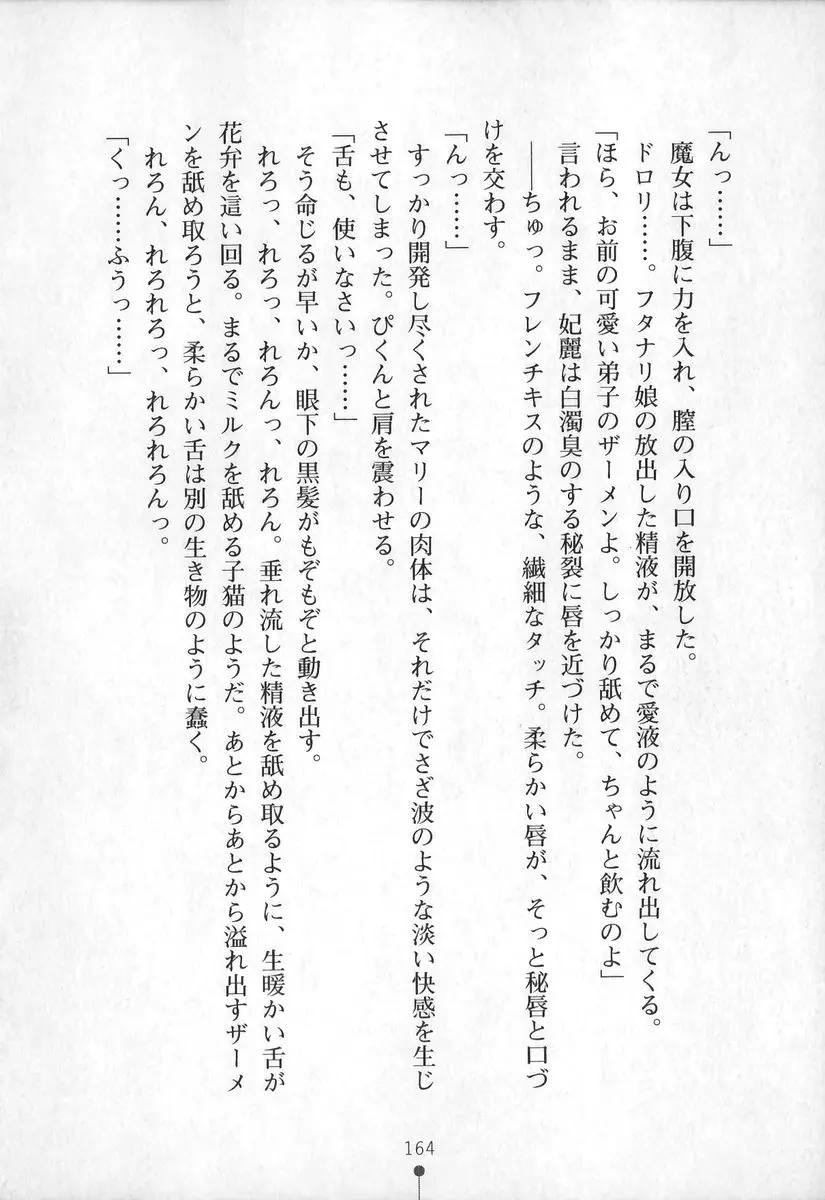 「んっ……」
　魔女は下腹に力を入れ、膣の入り口を開放した。
　ドロリ……。フタナリ娘の放出した精液が、まるで愛液のように流れ出してくる。
「ほら、お前の可愛い弟子のザーメンよ。しっかり舐めて、ちゃんと飲むのよ」
　言われるまま、妃麗は白濁臭のする秘裂に唇を近づけた。
　――ちゅっ。フレンチキスのような、繊細なタッチ。柔らかい唇が、そっと秘唇と口づ
けを交わす。
「んっ……」
　すっかり開発し尽くされたマリーの肉体は、それだけでさざ波のような淡い快感を生じ
させてしまった。ぴくんと肩を震わせる。
「舌も、使いなさいっ……」
　そう命じるが早いか、眼下の黒髪がもぞもぞと動き出す。
　れろっ、れろっ、れろんっ、れろん。垂れ流した精液を舐め取るように、生暖かい舌が
花弁を這い回る。まるでミルクを舐める子猫のようだ。あとからあとから溢れ出すザーメ
ンを舐め取ろうと、柔らかい舌は別の生き物のように蠢く。
　れろん、れろれろっ、れろれろんっ。
「くっ……ふうっ……」
164